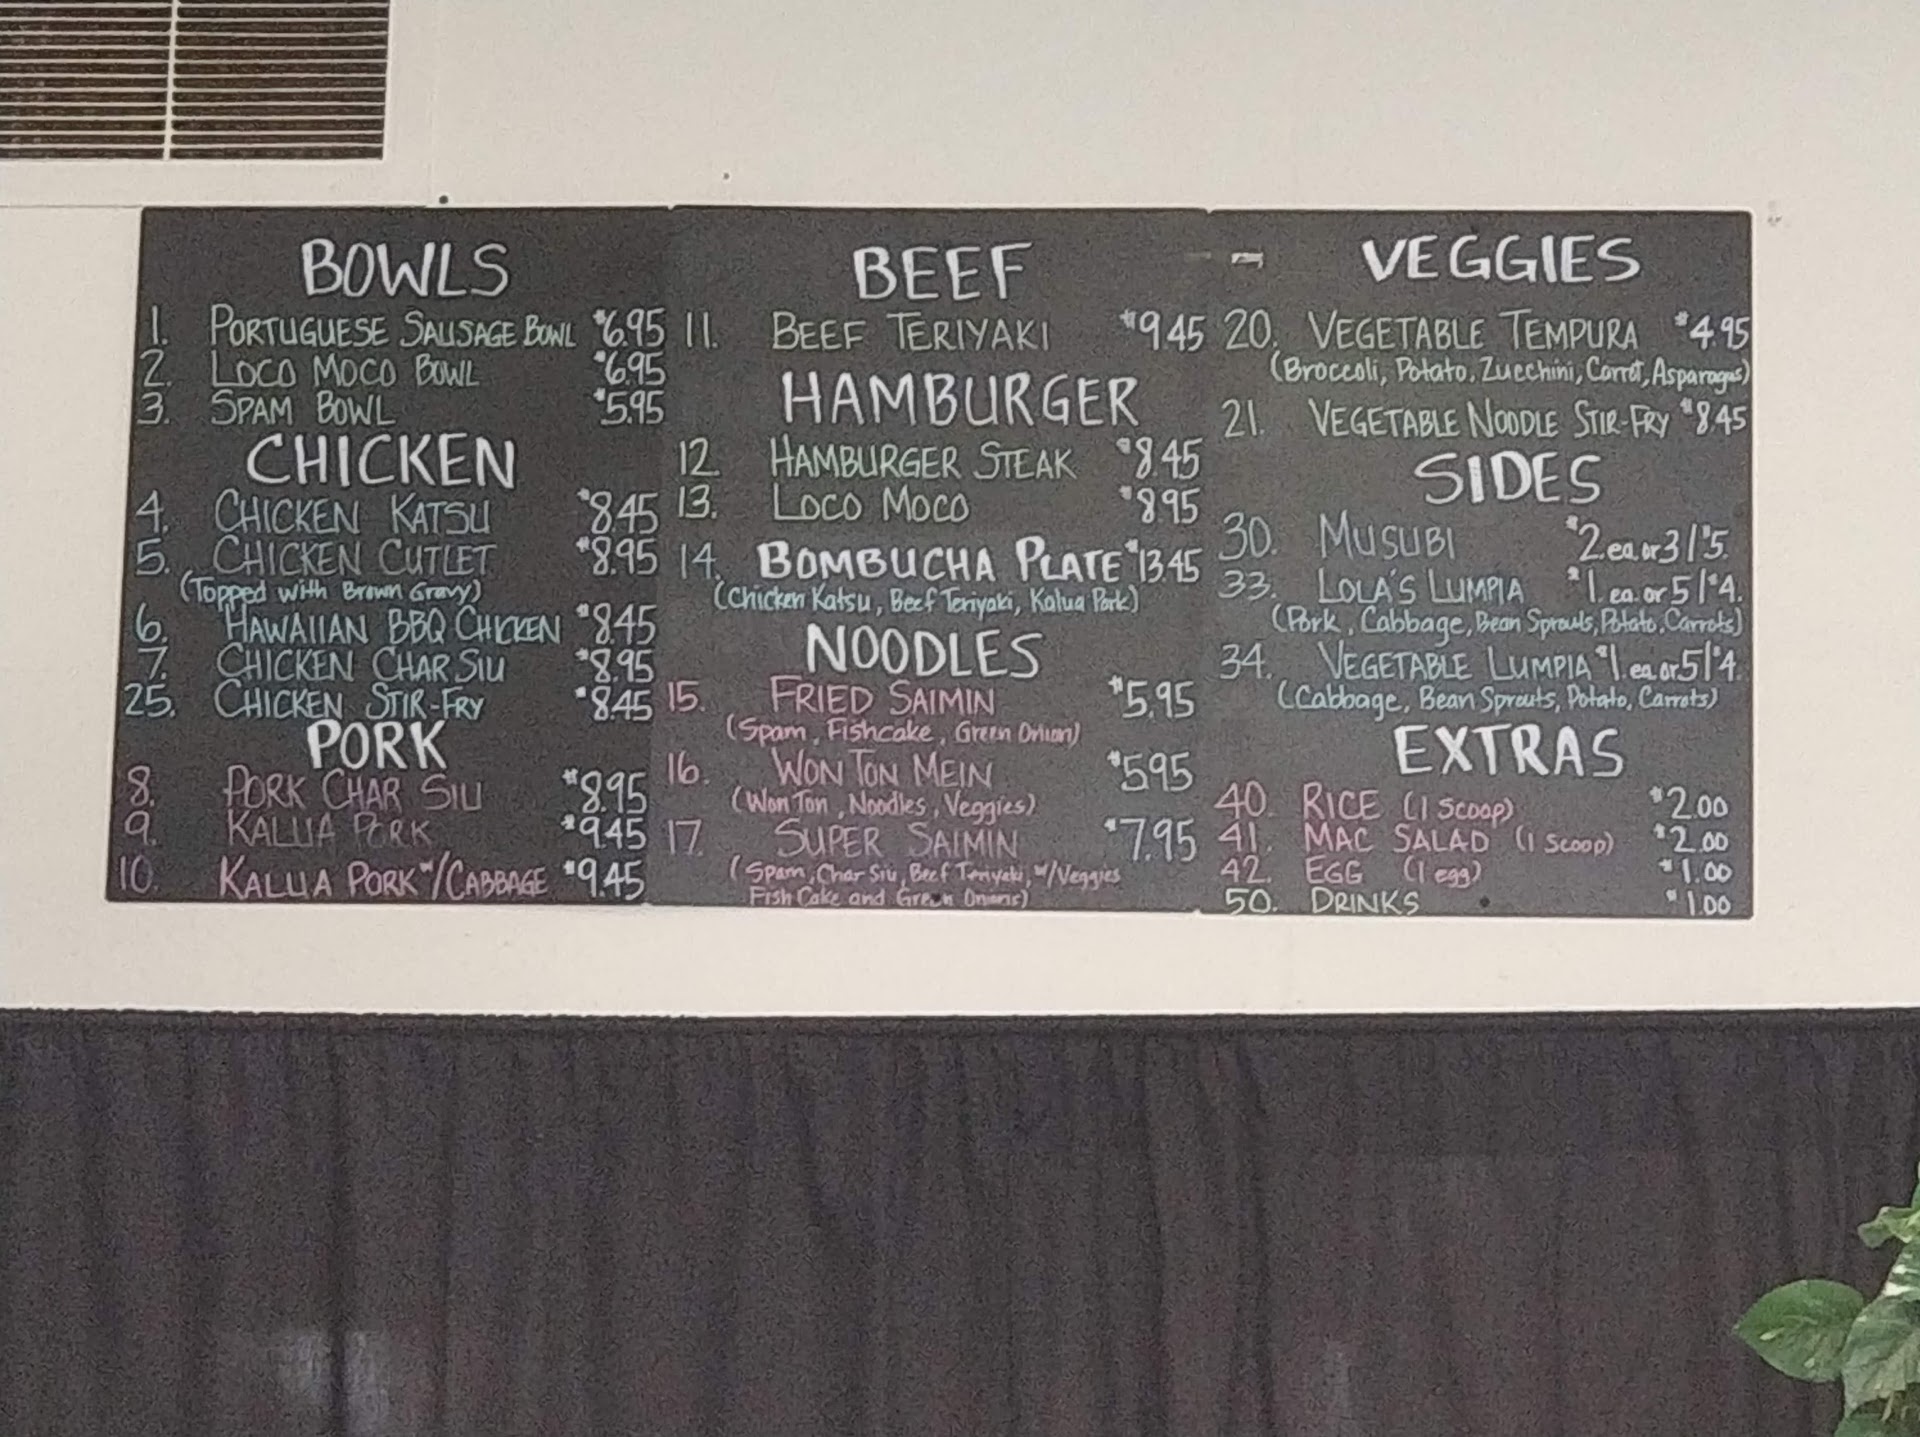 BOWLS
1. PORTUGUESE SAUSAGE BOWL $6.95
2. LOCO MOCO BOWL $6.95
3. SPAM BOWL $5.95
CHICKEN
4. CHICKEN KATSU $8.45
5. CHICKEN CUTLET $8.95
(Topped with Brown Gravy)
6. HAWAIIAN BBQ CHICKEN $8.45
7. CHICKEN CHAR SIU $8.95
25. CHICKEN STIR-FRY $8.45
PORK
8. PORK CHAR SIU $8.95
9. KALUA PORK $9.45
10. KALUA PORK W/CABBAGE $9.45
BEEF
11. BEEF TERIYAKI $9.45
HAMBURGER
12. HAMBURGER STEAK $8.45
13. LOCO MOCO $8.95
14. BOMBUCHA PLATE $13.45
(Chicken Katsu, Beef Teriyaki, Kalua Pork)
NOODLES
15. FRIED SAIMIN $5.95
(Spam, Fishcake, Green Onion)
16. WON TON MEIN $5.95
(Won Ton, Noodles, Veggies)
17. SUPER SAIMIN $7.95
(Spam, Char Siu, Beef Teriyaki, w/Veggies
Fish Cake and Green Onions)
VEGGIES
20. VEGETABLE TEMPURA $4.95
(Broccoli, Potato, Zucchini, Carrot, Asparagus)
21. VEGETABLE NOODLE STIR-FRY $8.45
SIDES
30. MUSUBI $2.ea.or 3/$5.
33. LOLA'S LUMPIA $1.ea.or 5/$4.
(Pork, Cabbage, Bean Sprouts, Potato, Carrots)
34. VEGETABLE LUMPIA $1.ea.or 5/$4.
(Cabbage, Bean Sprouts, Potato, Carrots)
EXTRAS
40. RICE (1 Scoop) $2.00
41. MAC SALAD (1 Scoop) $2.00
42. EGG (1 egg) $1.00
50. DRINKS $1.00